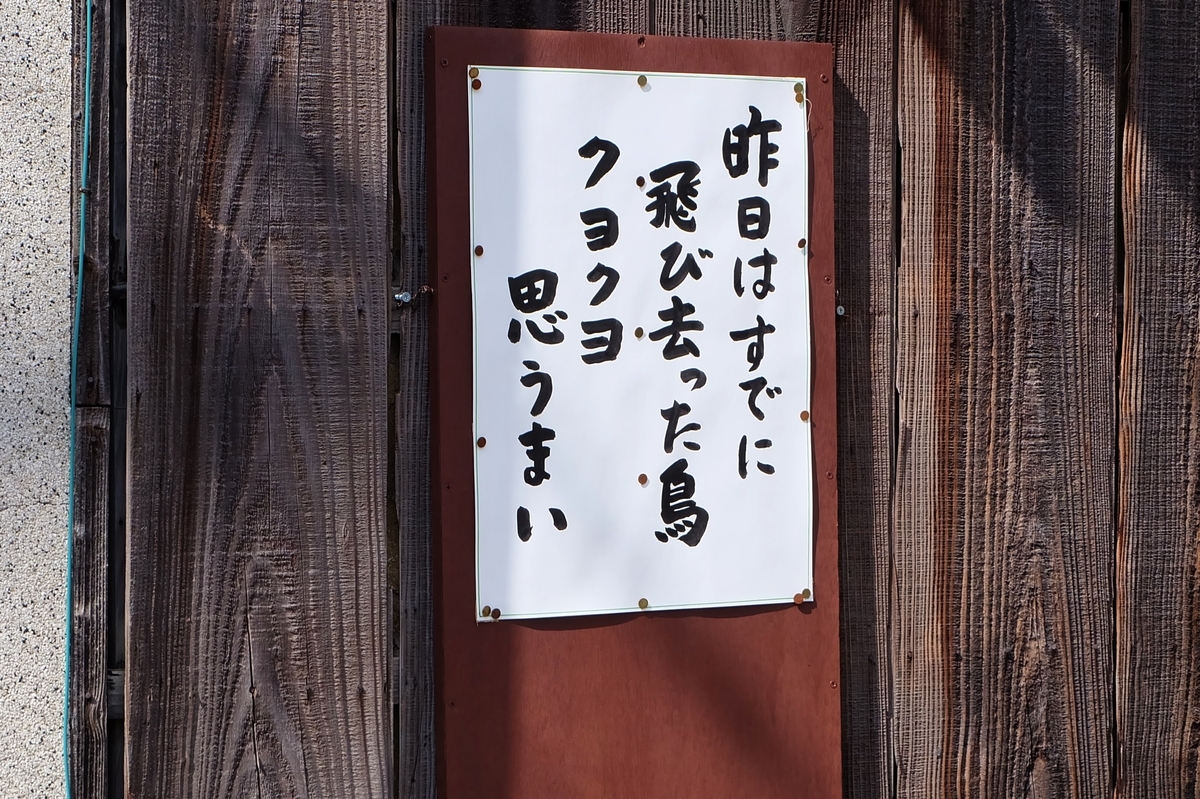 昨日はすでに
飛び去った鳥
クヨクヨ
思うまい